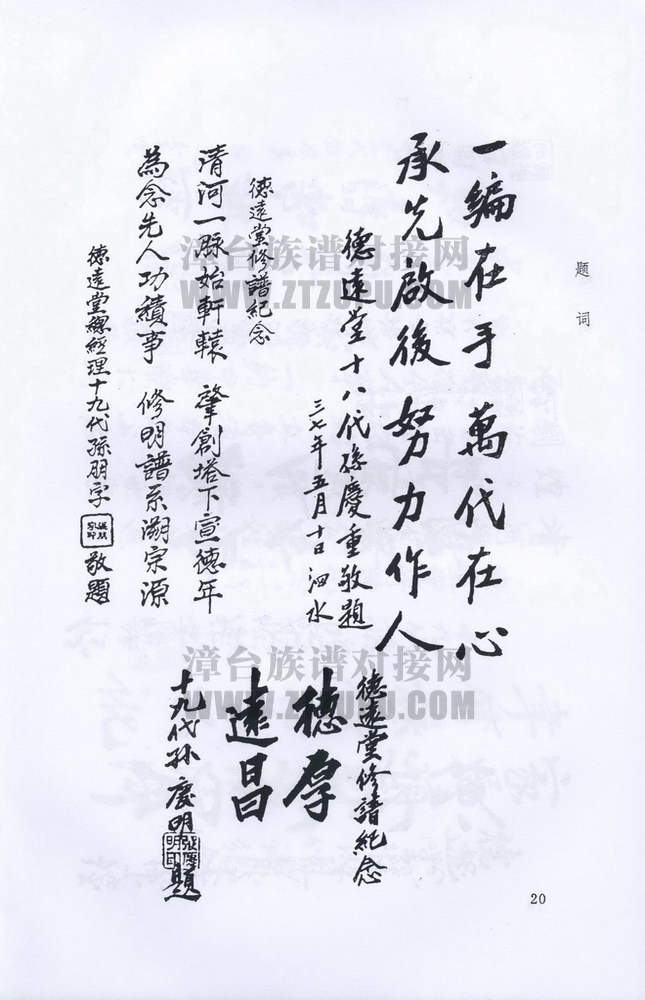 题词
一编在手 萬代在心
承先啟後努力作人
德遠堂十八代孫慶重敬題
三七年五月十日泗水
德遠堂修譜紀念
清河一脉始軒轅 肇創塔下宣德年
為念先人功績事 修明譜系溯宗源
德遠堂總經理十九代孫朋字
敬題
德遠堂修譜紀念
德厚
遠昌
十九代孙慶明
題
漳台族谱对接网
WWW.ZTZUPU.COM
漳台族谱对接网
WWW.ZTZUPU.COM
20